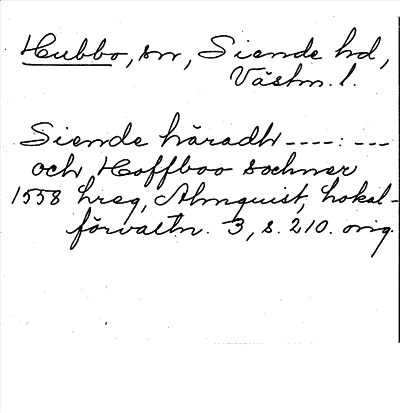 Hubbo, sn, Siende hd,
Västm. l.
Siende häradh ----: ---
och Hoffboo sochner
1558 hreg, Almquist, Lokal-
förvaltn. 3, s. 210. orig.